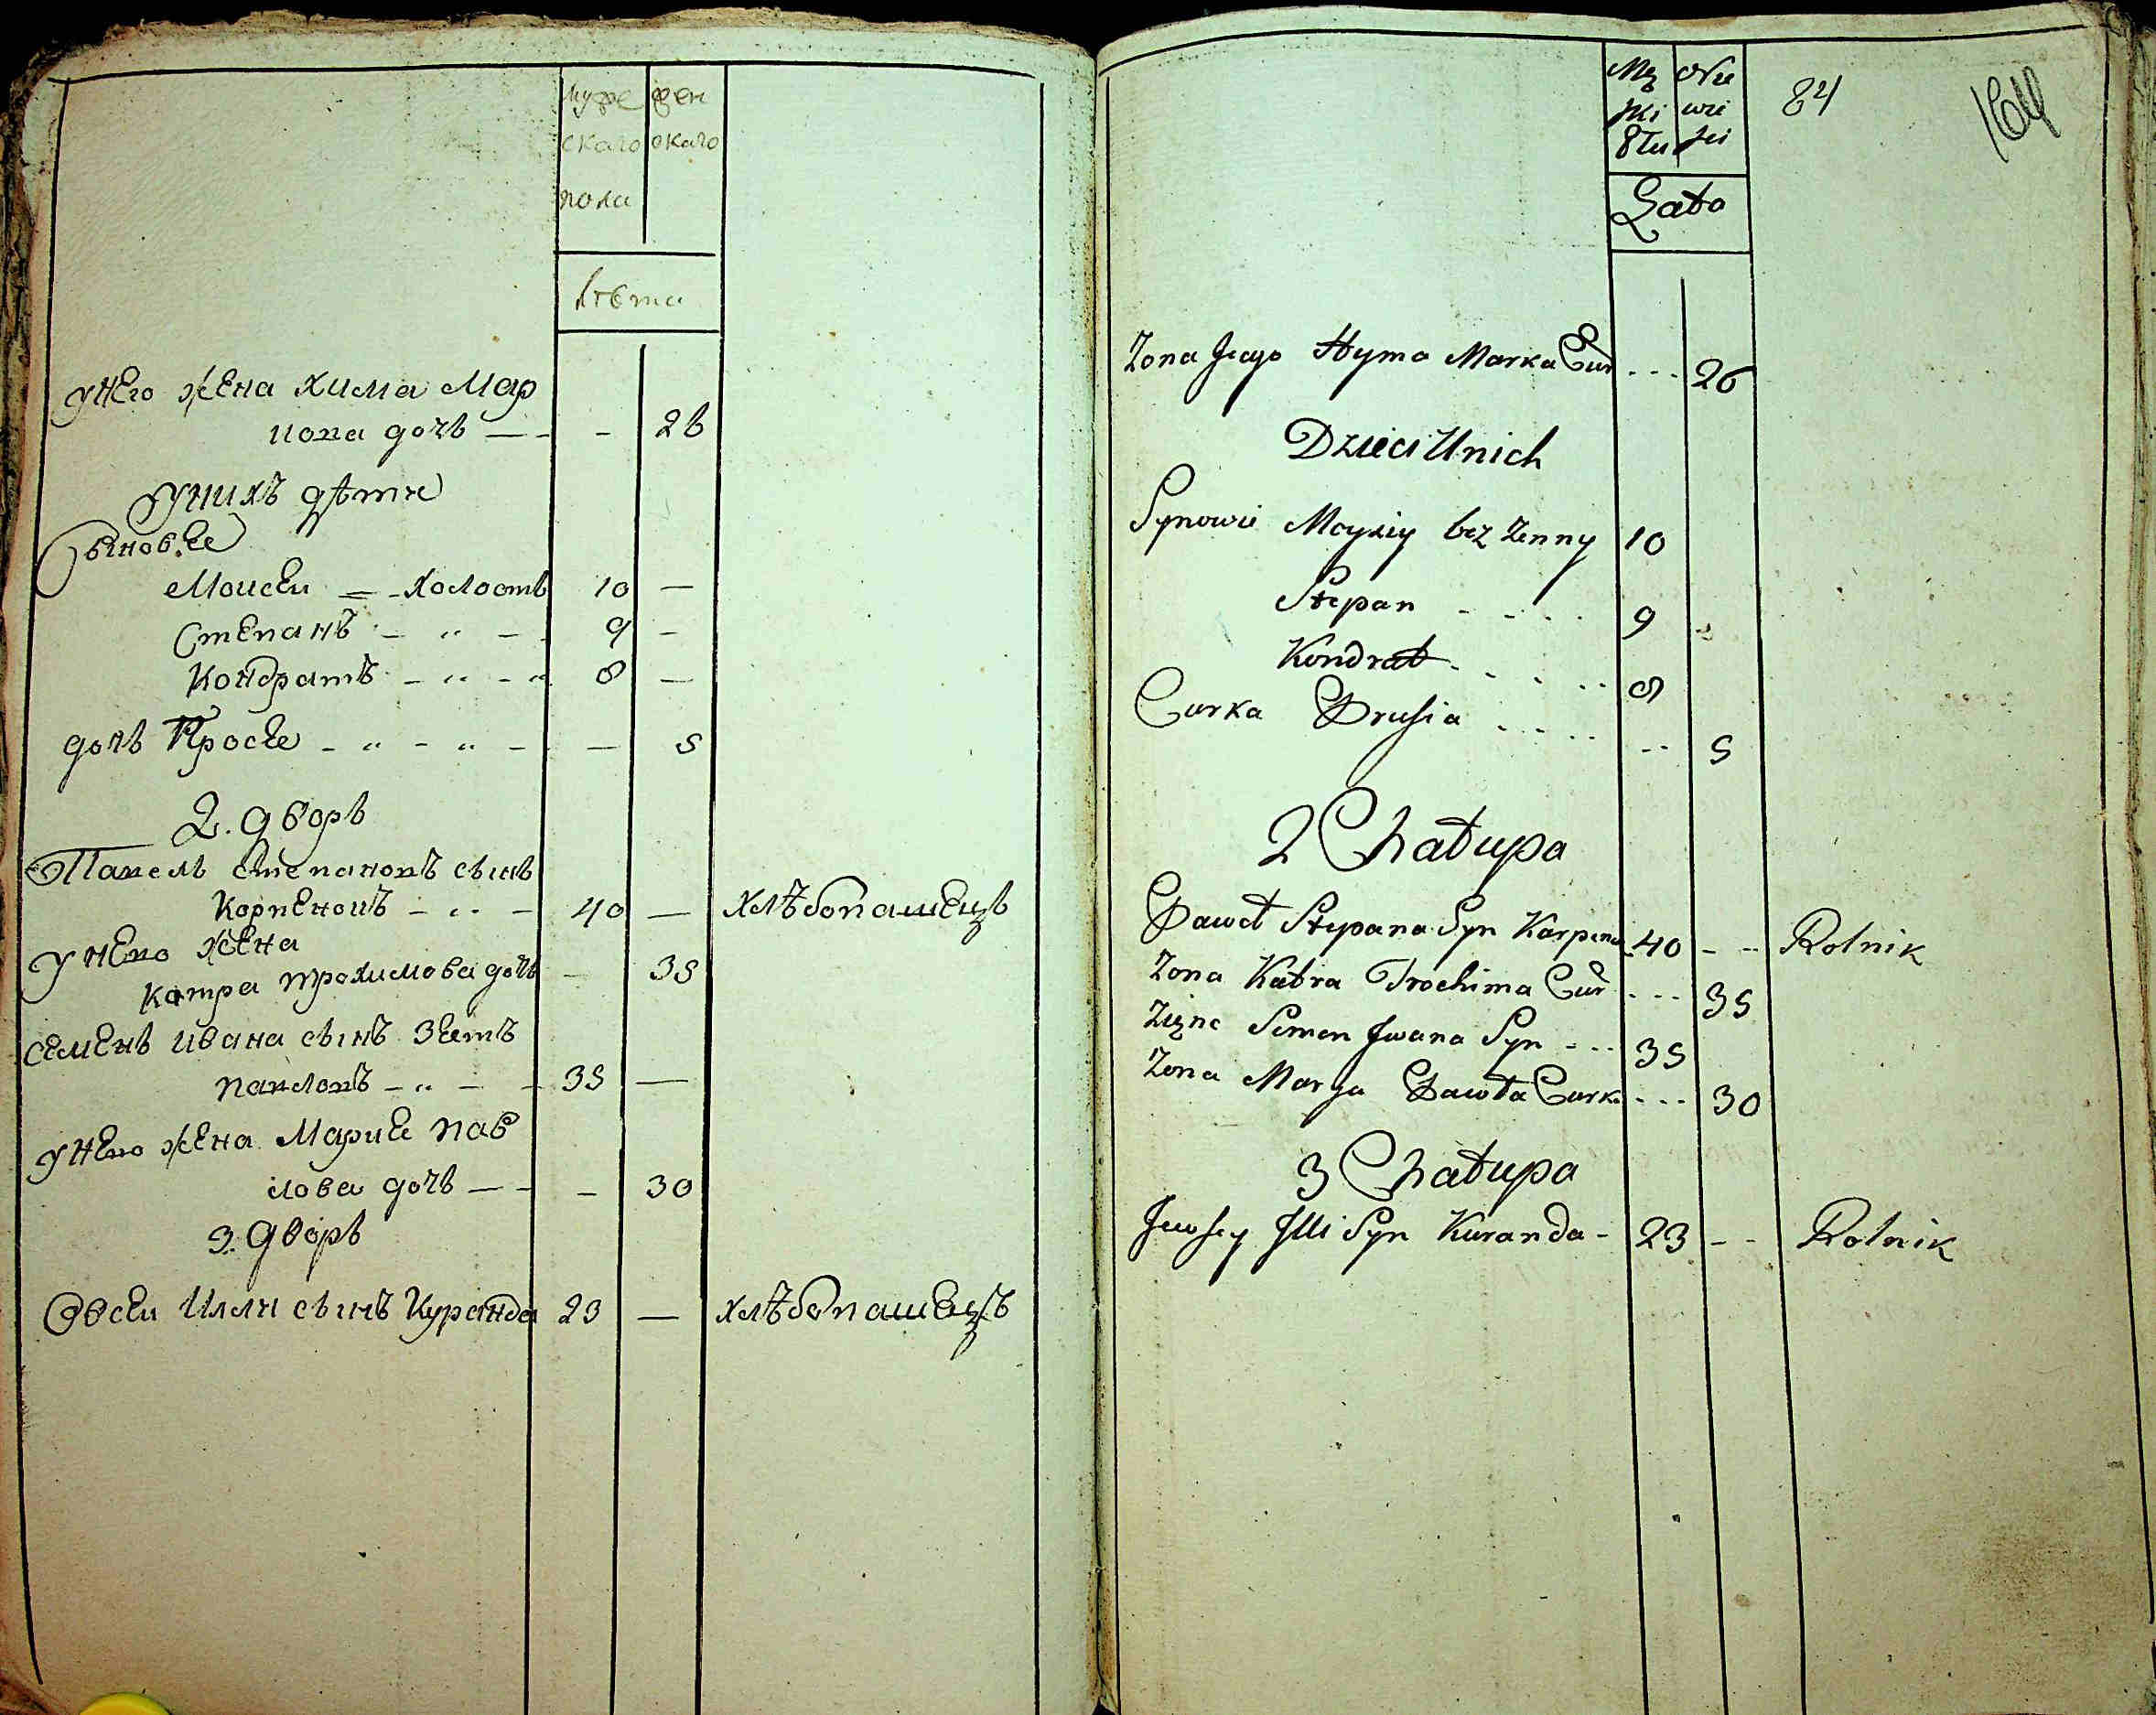 муже жен
скаго скаго
пола
лѣта
унего жена хима Мар
кова дочь — - - 26
унихъ дѣти
Сынове
Моисеи = - холостъ 10 —
Степанъ - " - 9 -
Кондратъ - " - " 8 —
дочь Прося - " - " - — 5
2. дворъ
Павелъ степановъ сынъ
Корпеновъ - " - 40 — хлѣбопашецъ
унего жена
катра трохимова дочь - 35
семенъ ивана сынъ зять
павловъ - " - - 35 —
унего жена Мария пав
лова дочь — - - 30
3. дворъ
Овсеи Илли сынъ Куранда 23 — хлѣбопашецъ
Mę Nie
ski wie
Płu ski
84
164
Lata
Zona Jego Hyma Marka Cur --- 26
Dzieci Unich
Synowie Moyziy bez Zenny 10
Stepan - . . . 9
Kondrat - . . . . 8
Curka Prusia . . . . -- 5
2 Chałupa
Paweł Stepana Syn Karpena 40 - - Rolnik
Zona Katra Trochima Cur --- 35
Zięnc Semen Jwana Syn --- 35
Zona Marya Pawła Curk --- 30
3 Chałupa
Jewsey Jlli Syn Kuranda - 23 - - Rolnik